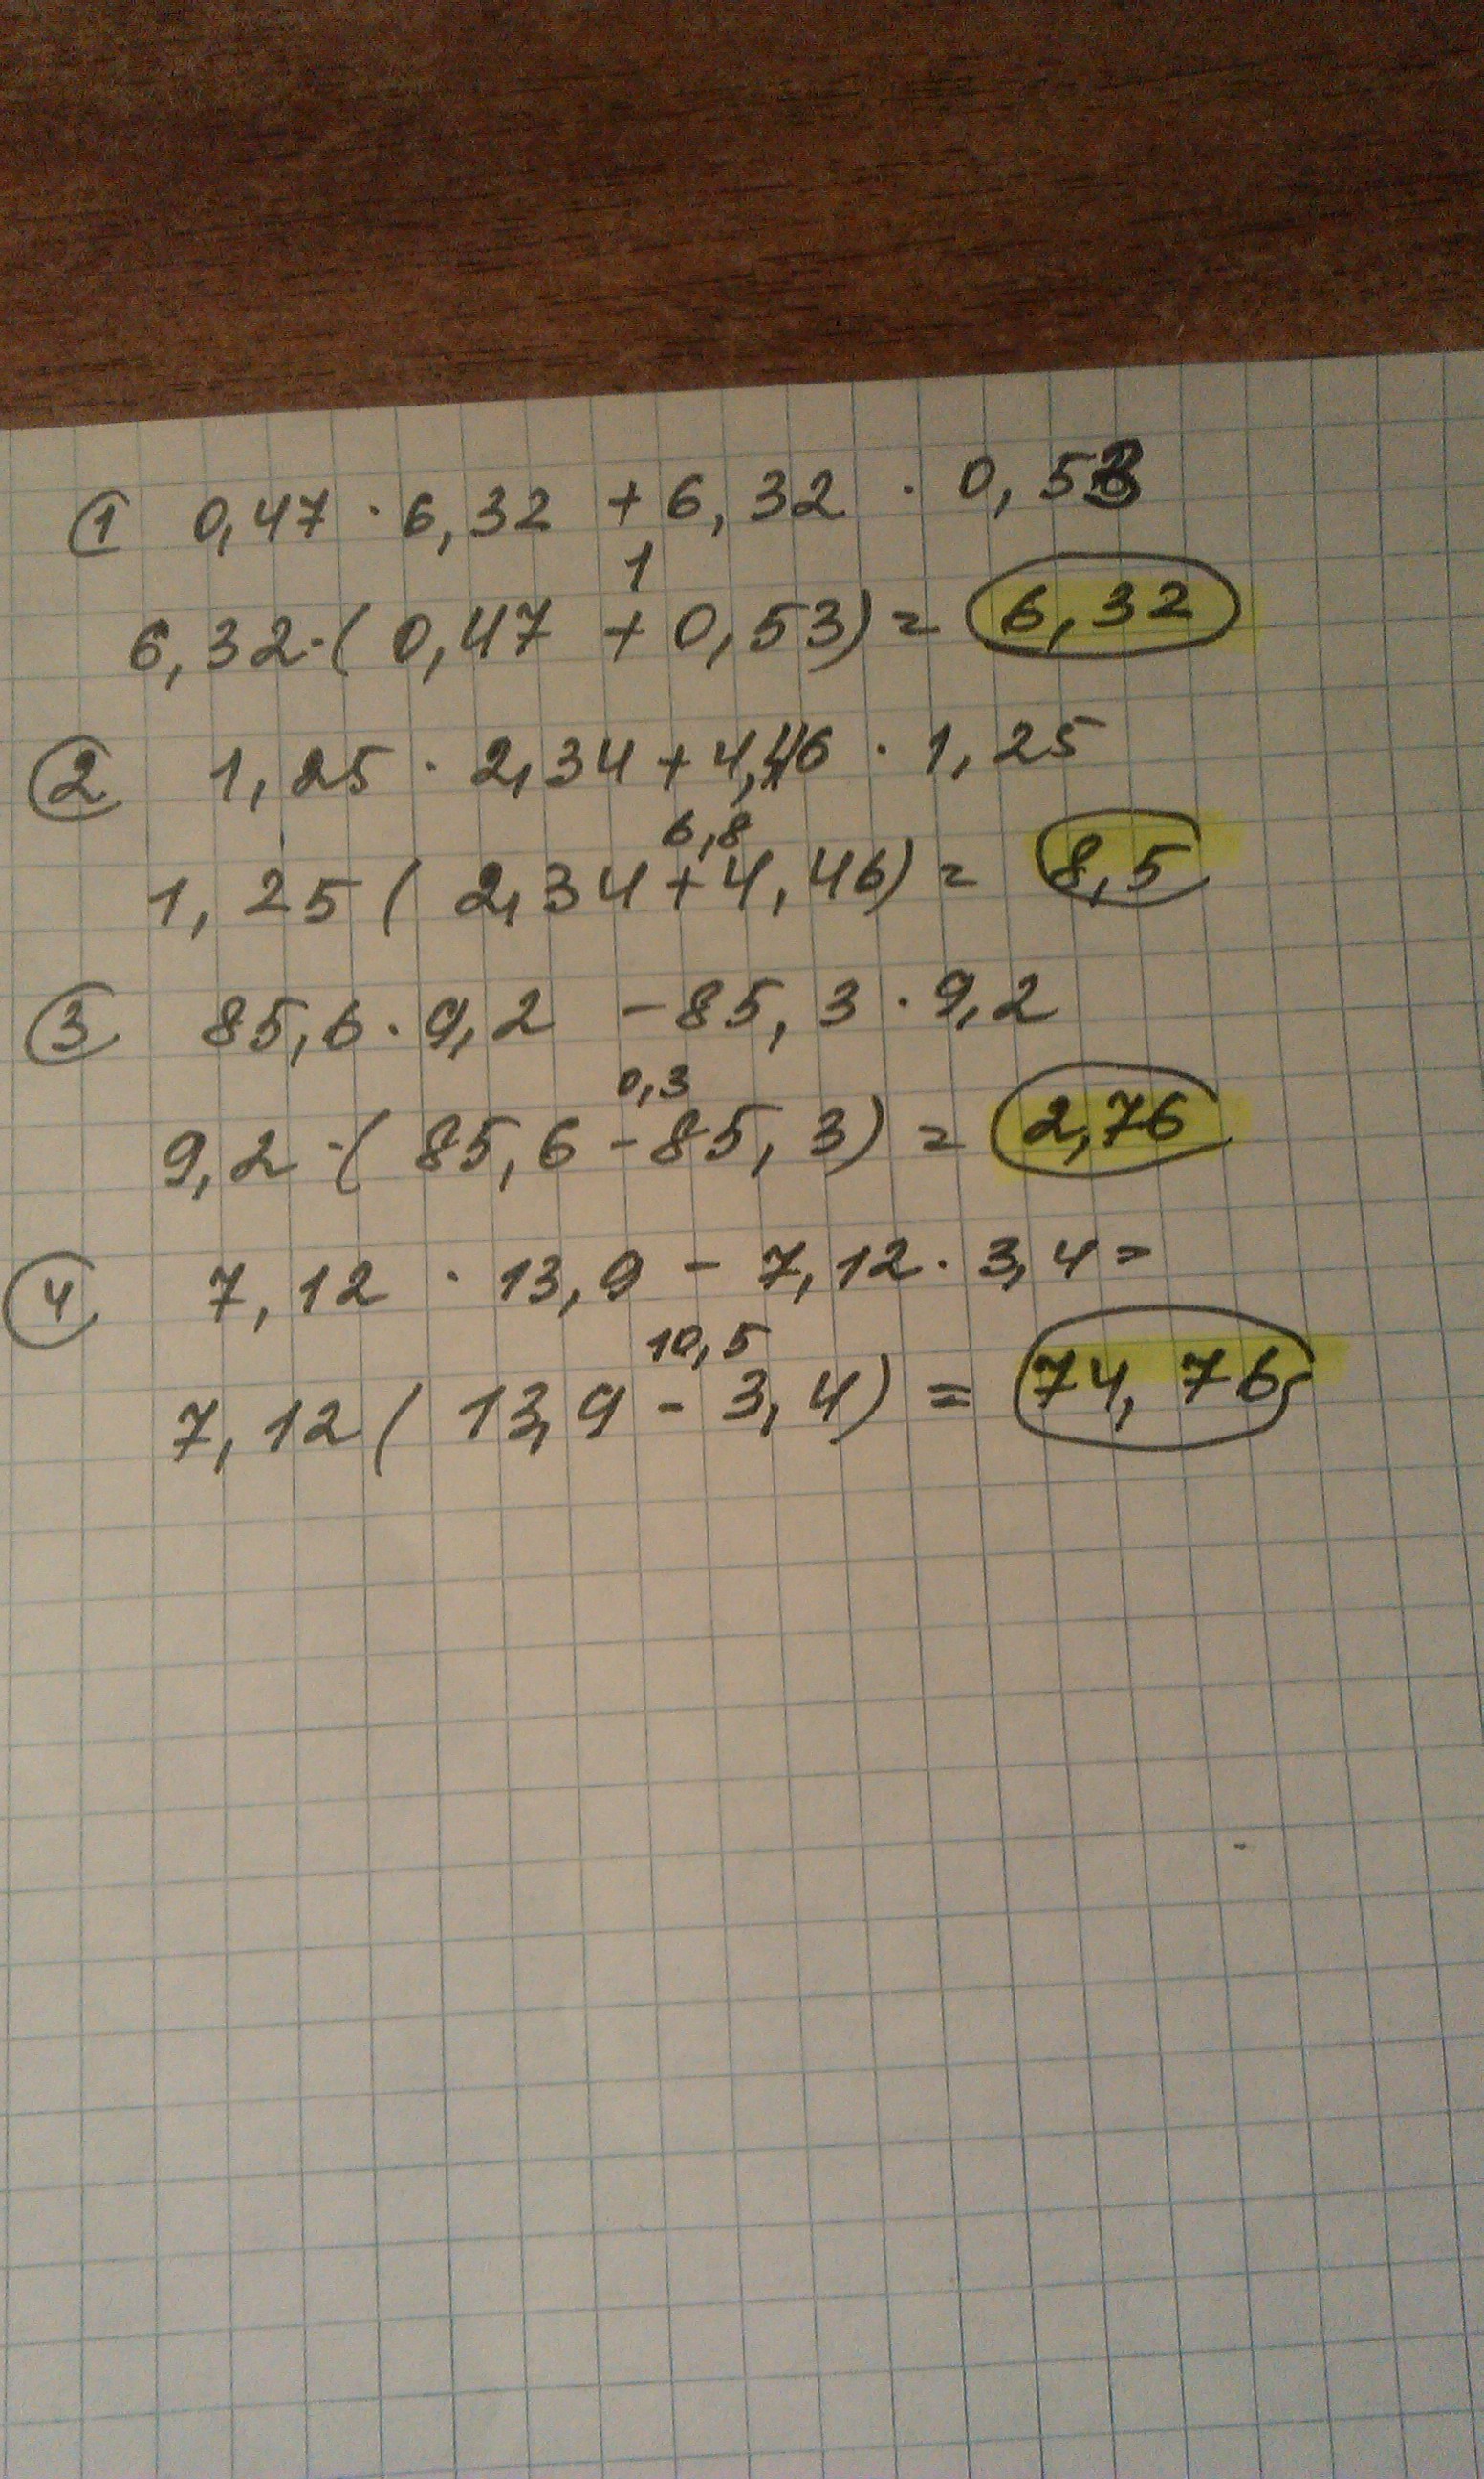 ① 0,47 · 6,32 + 6,32 · 0,53
1
6,32 · ( 0,47 + 0,53) = 6,32
② 1,25 · 2,34 + 4,46 · 1,25
6,8
1,25 ( 2,34 + 4,46) = 8,5
③ 85,6 · 9,2 - 85,3 · 9,2
0,3
9,2 · ( 85,6 - 85,3) = 2,76
④ 7,12 · 13,9 - 7,12 · 3,4 =
10,5
7,12 ( 13,9 - 3,4) = 74,76